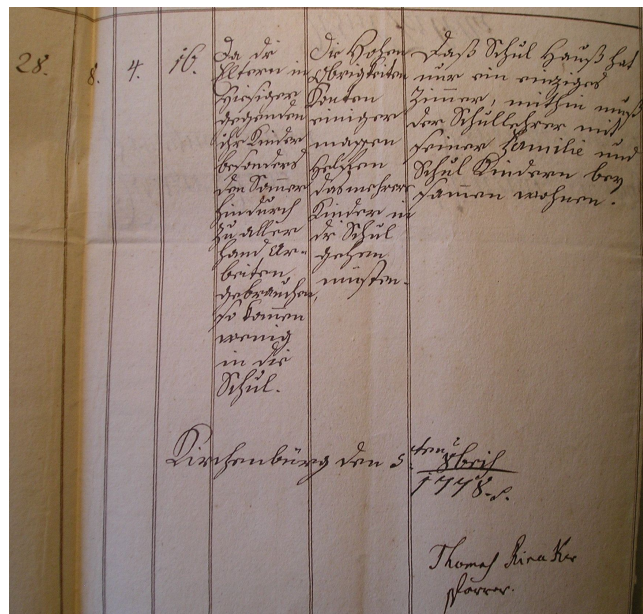 28.
8.
4.
16.
Da dr
Ältern in
hiesiger
gegenden
ihr Kinder
besonders
den Som̄er
hindurch
zu aller
hand Ar-
beiten,
gebrauchen,
so kom̄en
wenig
in die
Schul.
Die Hohen
Obrigkeiten
Konten
einiger
masen
helffen
das mehrere
Kinder in
dr Schul
gehen
müsten.
Daß Schul Hauß hat
nur ein einziges
Zimer, mithin muß
der Schullehrer mit
seiner Familie und
Schul Kindern bey
sam̄en wohnen.
Kirchenbürg den 5ten 8bris
1778.
Thomas
Pfarrer.